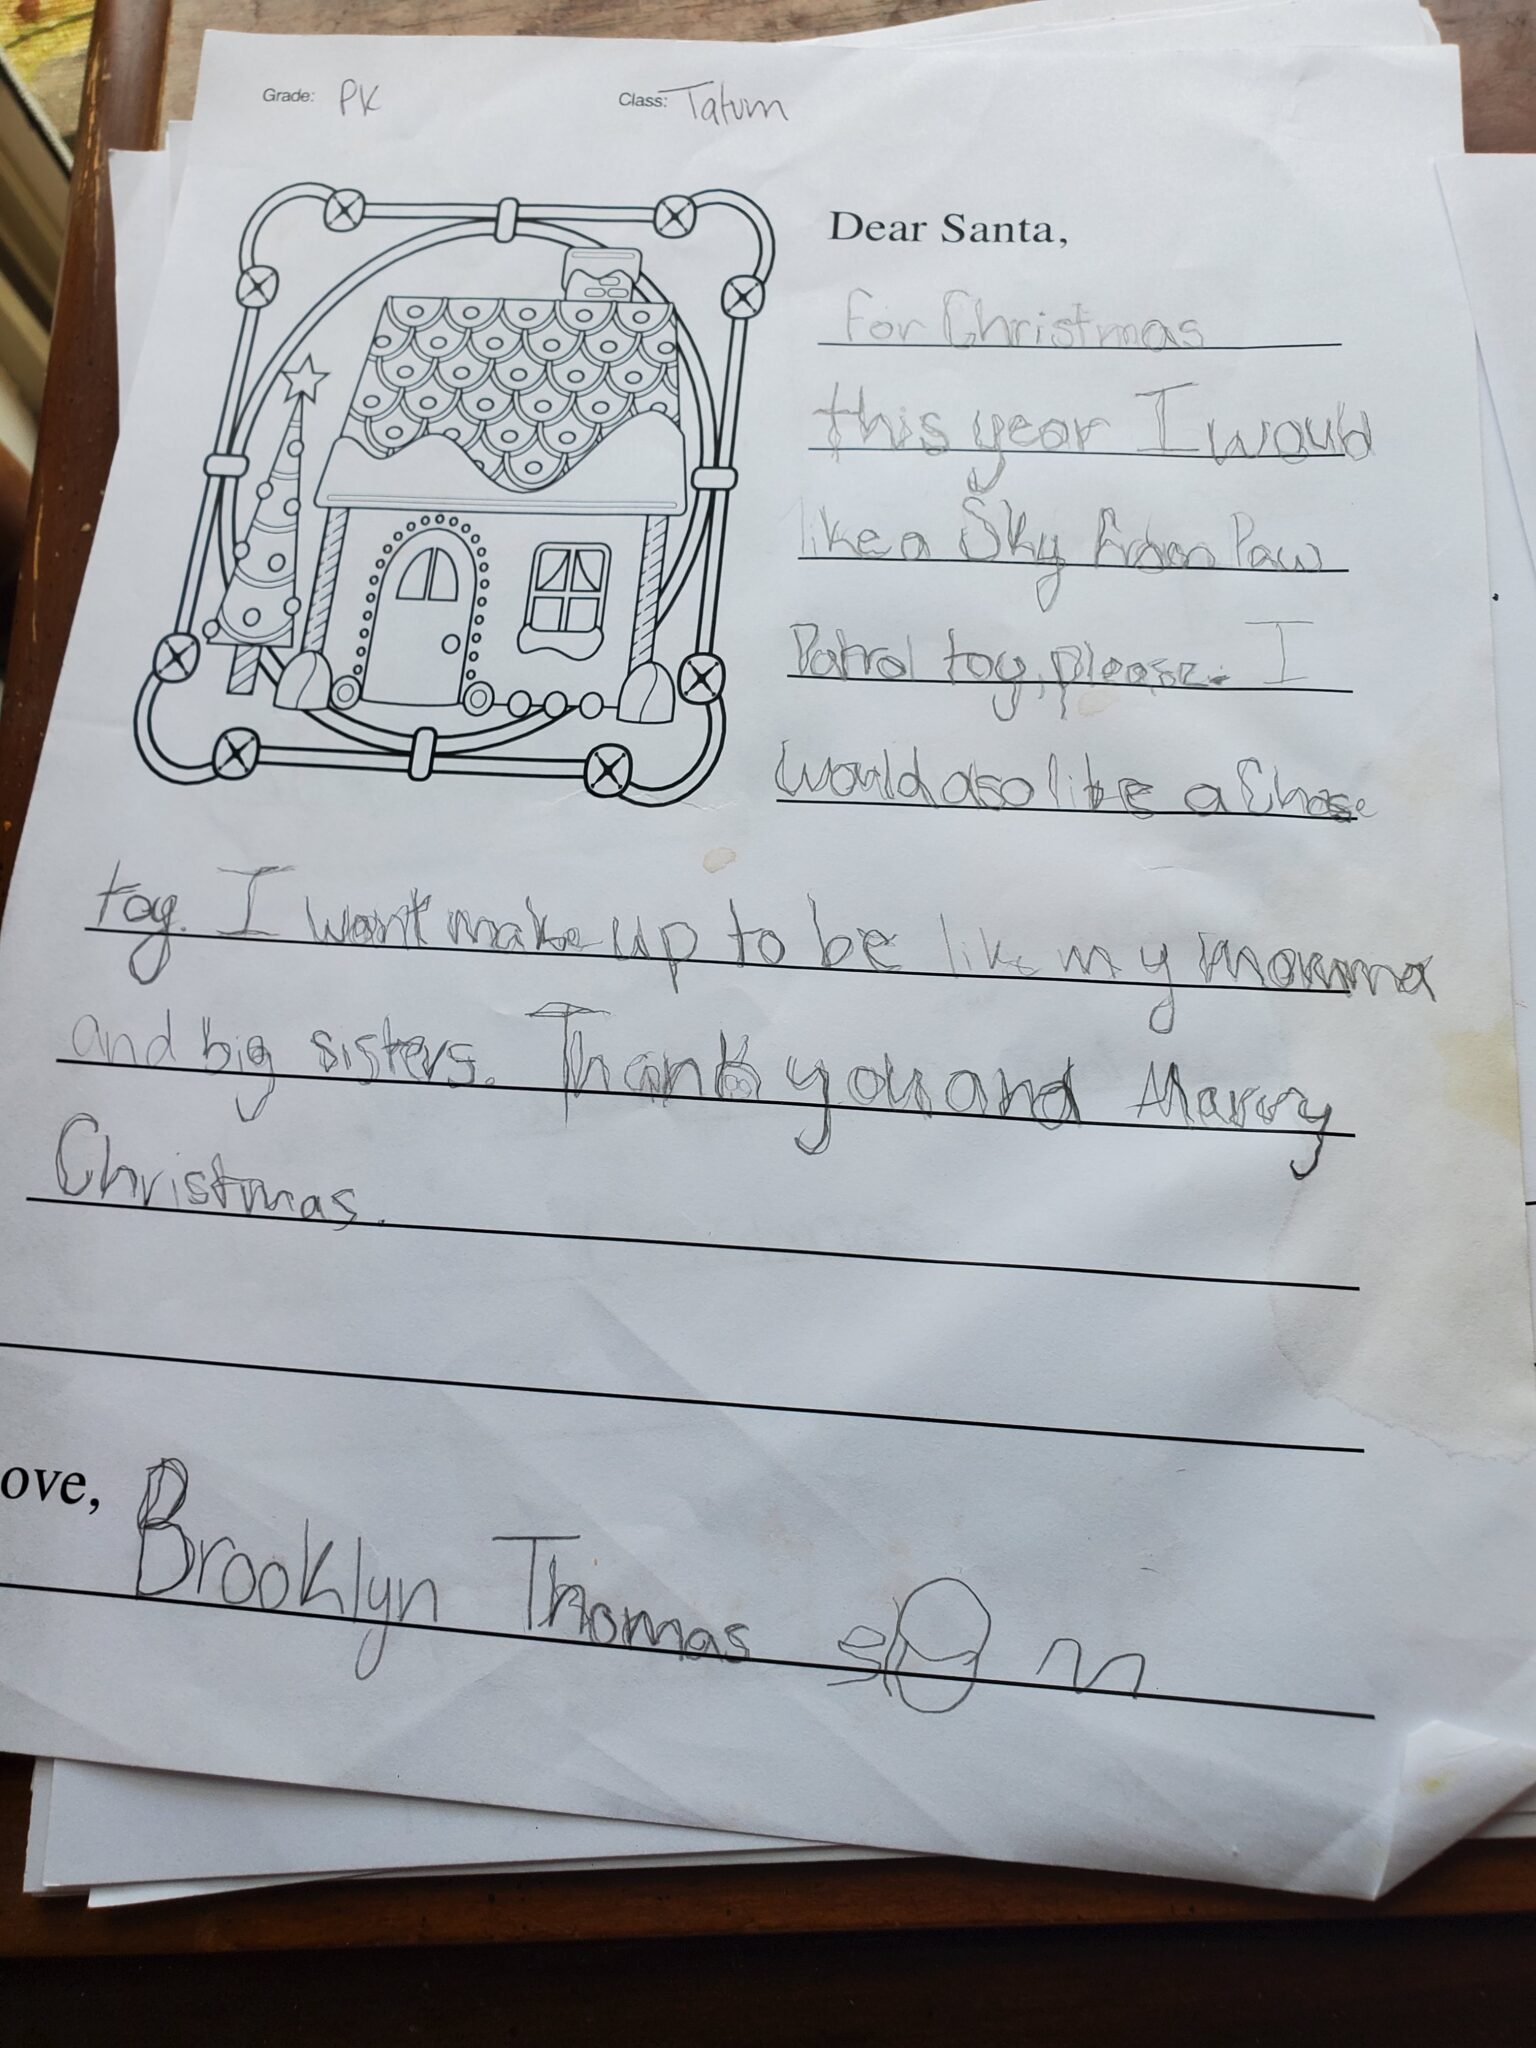 Grade: PK Class: Tatum
Dear Santa,
For Christmas
this year I would
like a Sky from Paw
Patrol toy, please. I
would also like a Chase
toy. I want make up to be like my momma
and big sisters. Thank you and Marry
Christmas.
ove, Brooklyn Thomas